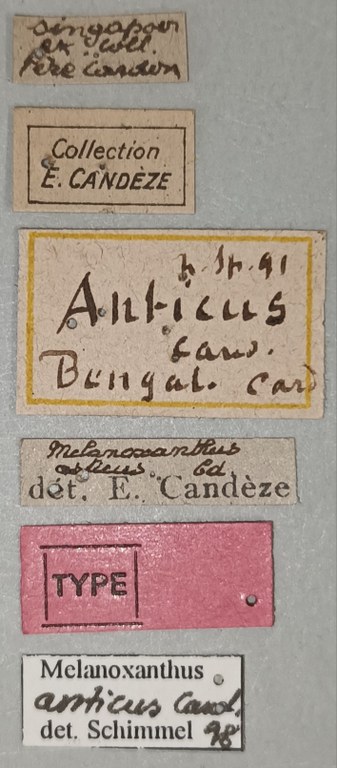 Singapour
ex coll.
Père Cardon
Collection
E. CANDÈZE
91
Anticus
Cand.
Bengal. Card
Melanoxanthus
anticus Cd.
dét. E. Candèze
TYPE
Melanoxanthus
anticus Cand.
det. Schimmel 98